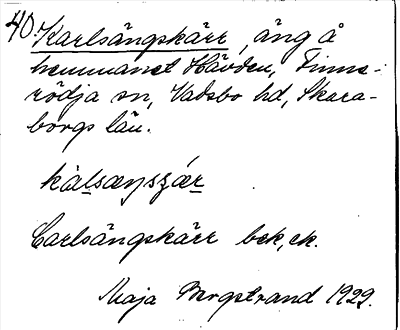 40. Karlsängskärr, äng å
hemmanet Hävden, Finne-
rödja sn, Vadsbo hd, Skara-
borgs län.
Carlsängskärr bek, ek.
Maja Bergstrand 1929.